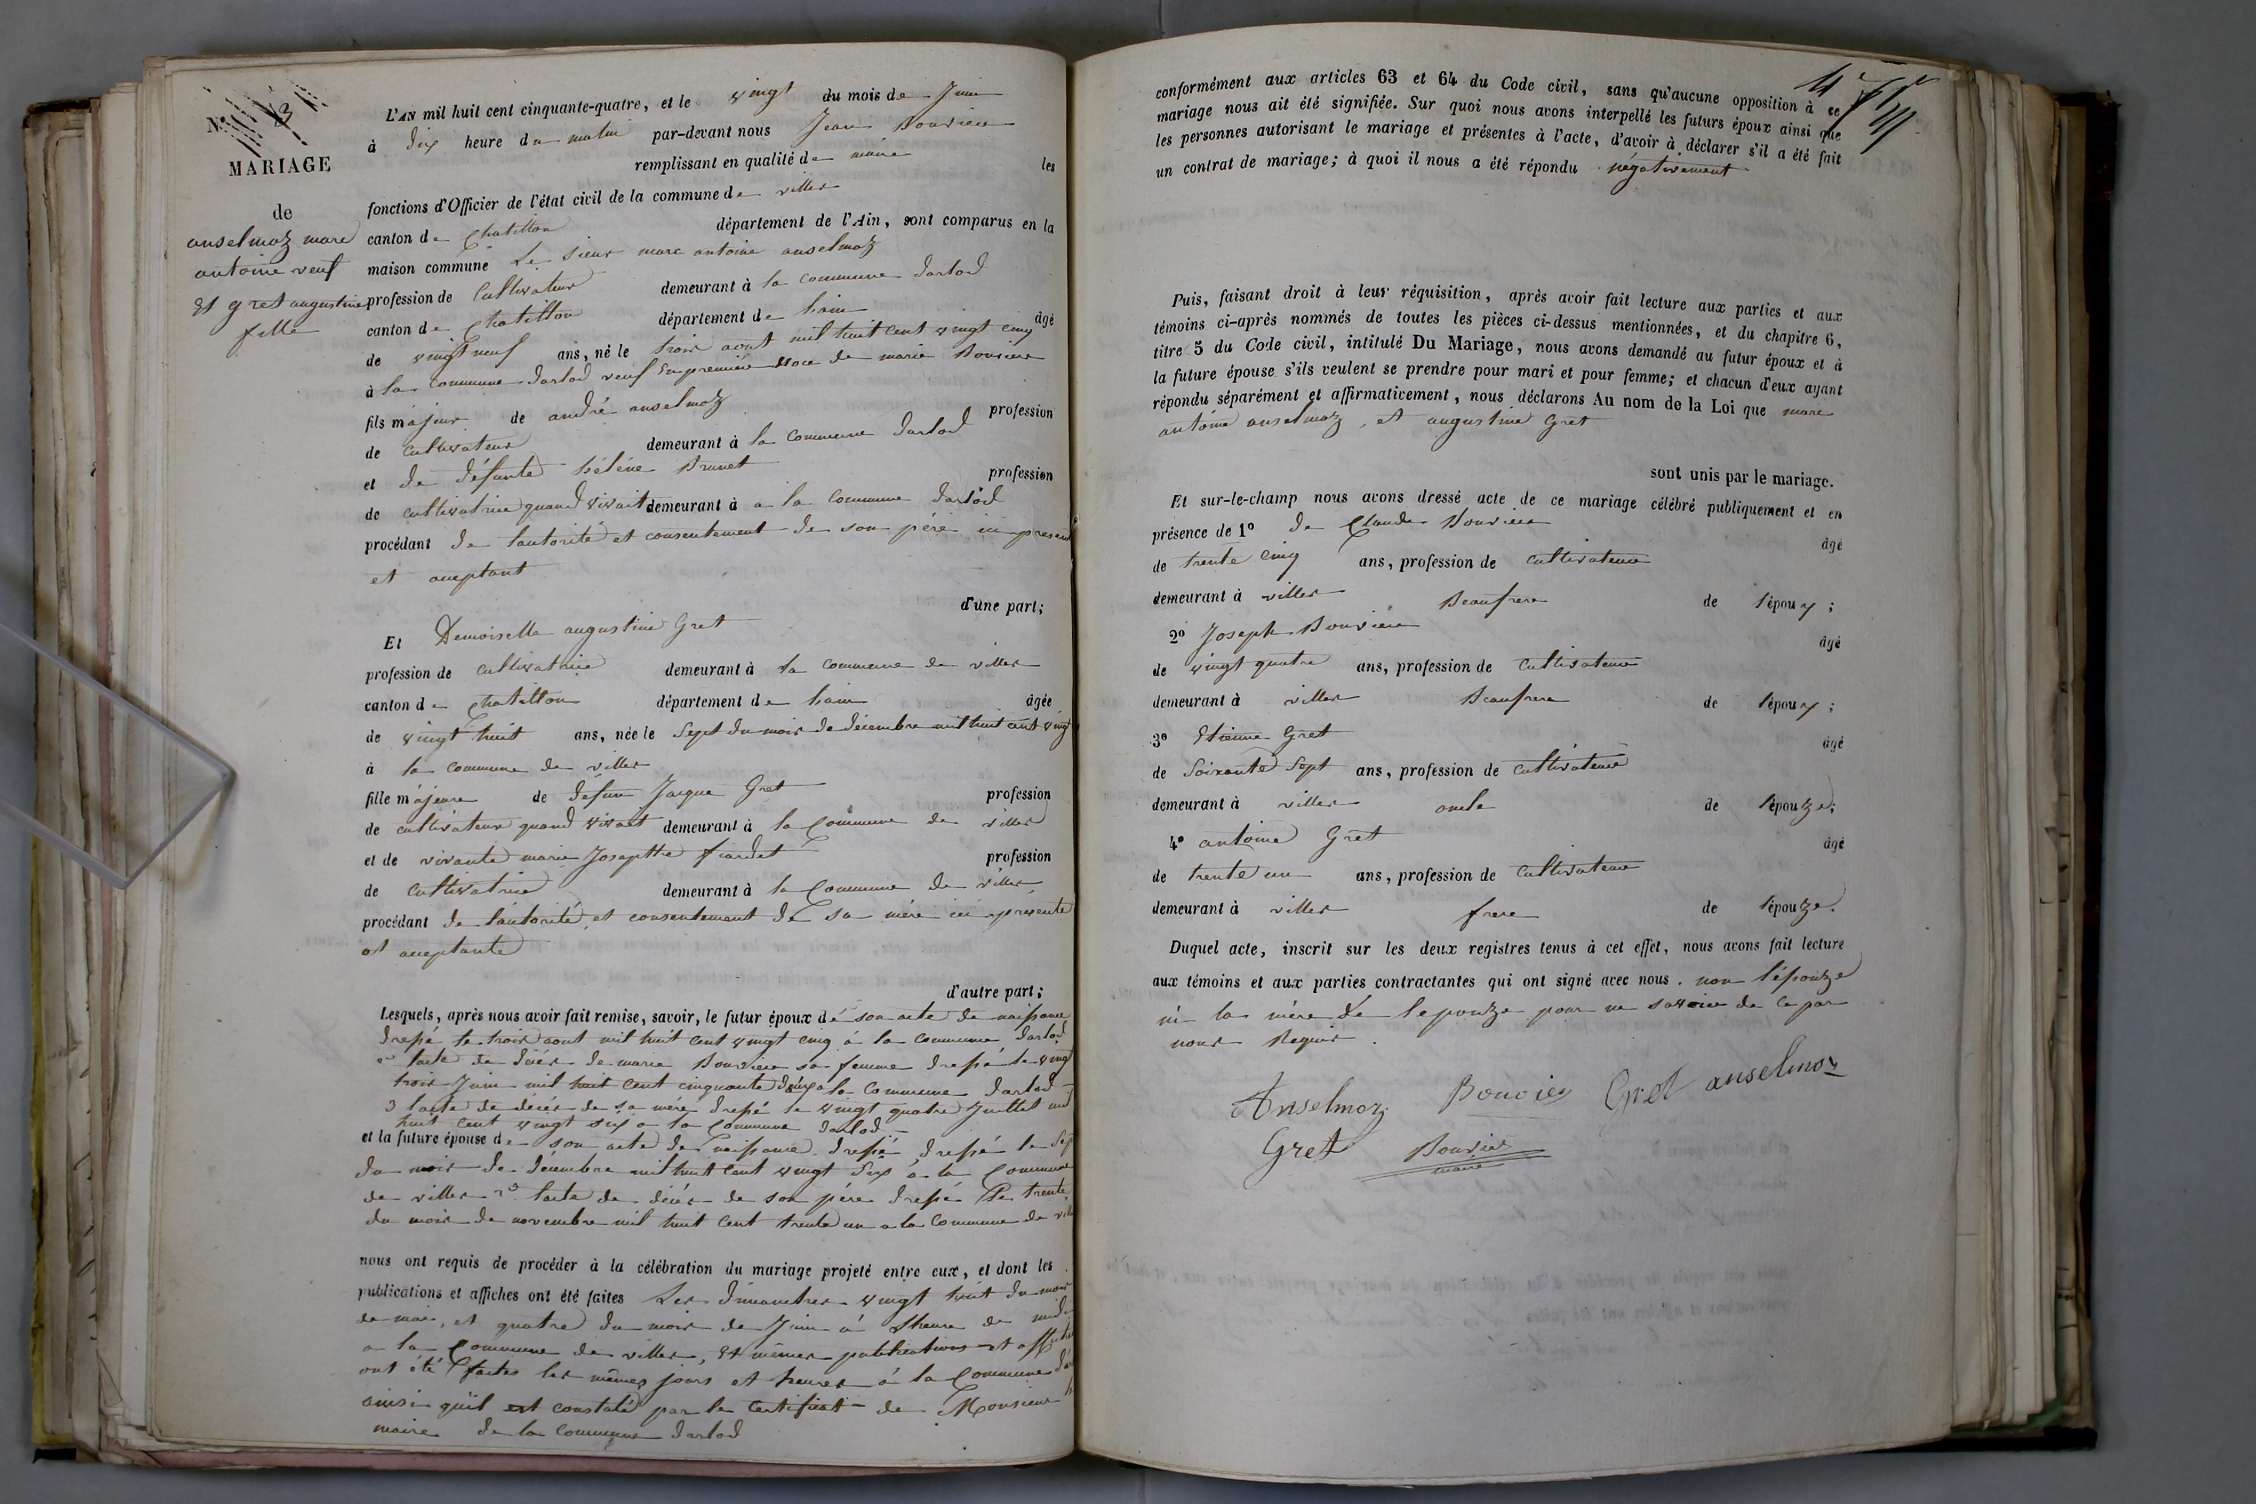 N.° 13
MARIAGE
de
anselmoz marc
antoine veuf
Et gret augustine
fille
L'AN mil huit cent cinquante-quatre, et le vingt du mois de Juin
à dix heure du matin par-devant nous Jean Bouvier
remplissant en qualité de maire les
fonctions d'Officier de l'état civil de la commune de villes
canton de Chatillon département de l'Ain, sont comparus en la
maison commune Le sieur marc antoine anselmoz
profession de Cultivateur demeurant à la commune darlod
canton de Chatillon département de lain âgé
de vingt neuf ans, né le trois aout mil huit cent vingt cinq
à la commune darlod veuf En première Noce de marie Bouvier
fils majeur de andré anselmoz profession
de cultivateur demeurant à la commune darlod
et de défunte hélène Brunet profession
de cultivatrice quand vivait demeurant à a la commune darlod
procédant de lautorité et consentement de son père ici present
et aceptant
d'une part;
Et Demoiselle augustine Gret
profession de cultivatrice demeurant à la commune de villes
canton de Chatillon département de lain âgée
de vingt huit ans, née le Sept du mois de décembre mil huit cent vingt
à la commune de villes
fille majeure de défun Jacque Gret profession
de cultivateur quand vivait demeurant à la Commune de villes
et de vivante marie Josephte fiardet profession
de cultivatrice demeurant à la Commune de villes
procédant de lautorité et consentement de sa mère ici présente
et aceptante
d'autre part;
Lesquels, après nous avoir fait remise, savoir, le futur époux dé son acte de naissance
dressé le trois aout mil huit cent vingt cinq à la commune darlod
2° lacte de décés de marie Bouvier sa femme dressé le vingt
trois Juin mil huit cent cinquante deux a la commune darlod
3 lacte de décés de sa mére dressé le vingt quatre Juillet mil
huit cent vingt six a la commune darlod
et la future épouse de son acte de naissance dressé dressé le Sept
du mois de décembre mil huit cent vingt Six à la Commune
de villes 2° lacte de décés de son pére dressé Le trente
du mois de novembre mil huit cent trente un a la Commune de
nous ont requis de procéder à la célébration du mariage projeté entre eux, et dont les
publications et affiches ont été faites Les dimanches vingt huit du mois
de mai, et quatre du mois de Juin à Lheure de midi
a la Commune de villes, Et mêmes publications et affiches
ont été faites les mêmes jours et heures à la Commune
ainsi qu'il est constaté par le Certificat de Monsieur
maire de la Commune darlod
conformément aux articles 63 et 64 du Code civil, sans qu'aucune opposition à ce
mariage nous ait été signifiée. Sur quoi nous avons interpellé les futurs époux ainsi que
les personnes autorisant le mariage et présentes à l'acte, d'avoir à déclarer s'il a été fait
un contrat de mariage; à quoi il nous a été répondu négativement
Puis, faisant droit à leur réquisition, après avoir fait lecture aux parties et aux
témoins ci-après nommés de toutes les pièces ci-dessus mentionnées, et du chapitre 6,
titre 5 du Code civil, intitulé Du Mariage, nous avons demandé au futur époux et à
la future épouse s'ils veulent se prendre pour mari et pour femme; et chacun d'eux ayant
répondu séparément et affirmativement, nous déclarons Au nom de la Loi que marc
antoine anselmoz, et augustine Gret
sont unis par le mariage.
Et sur-le-champ nous avons dressé acte de ce mariage célébré publiquement et en
présence de 1° de Claude Bouvier âgé
de trente cinq ans, profession de cultivateur
demeurant à villes Beaufrere de l'époux;
2° Joseph Bouvier âgé
de vingt quatre ans, profession de Cultivateur
demeurant à villes Beaufrere de l'époux;
3° Etienne Gret âgé
de Soixante Sept ans, profession de cultivateur
demeurant à villes oncle de l'épouze;
4° antoine Gret âgé
de trente un ans, profession de Cultivateur
demeurant à villes frere de l'épouze.
Duquel acte, inscrit sur les deux registres tenus à cet effet, nous avons fait lecture
aux témoins et aux parties contractantes qui ont signé avec nous. non l'épouze
ni la mère de lepouze pour ne savoir de ce par
nous Requis.
Anselmoz Bouvier Gret anselmoz
Gret Bouvier
maire